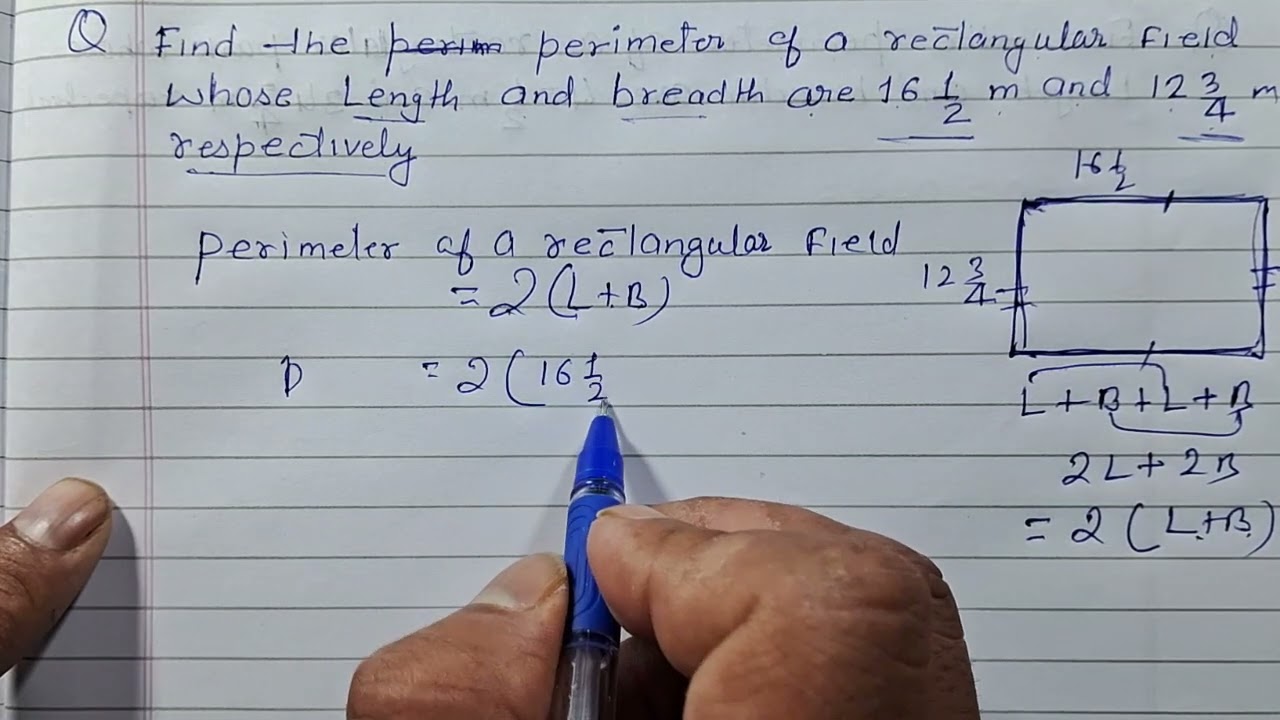 Q Find the perim perimeter of a rectangular field
whose Length and breadth are 16 1/2 m and 12 3/4 m
respectively
16 1/2
perimeter of a rectangular field
= 2(L+B)
12 3/4
P = 2(16 1/2
L+B+L+B
2L+2B
= 2(L+B)